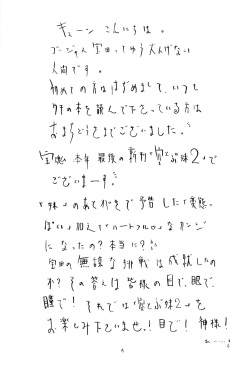 キューン こんにちは。
ゴージャス宝田ってゆう大人げない
人間です。
初めての方ははじめまして、いつも
ウチの本を読んで下さっている方は
おまちどうさまでございました。
本年 最後の新刊 妹2 で
ございまーす!
妹 のあとがきで予告した 変態っ
ぽい 加えて ハートフル な カンジ
になったの?本当に?
宝田の無謀な挑戦は成就したの
か?その答えは皆様の目で、眼で、
瞳で!それでは 妹2 を
お楽しみ下さいませ!目で!神様!